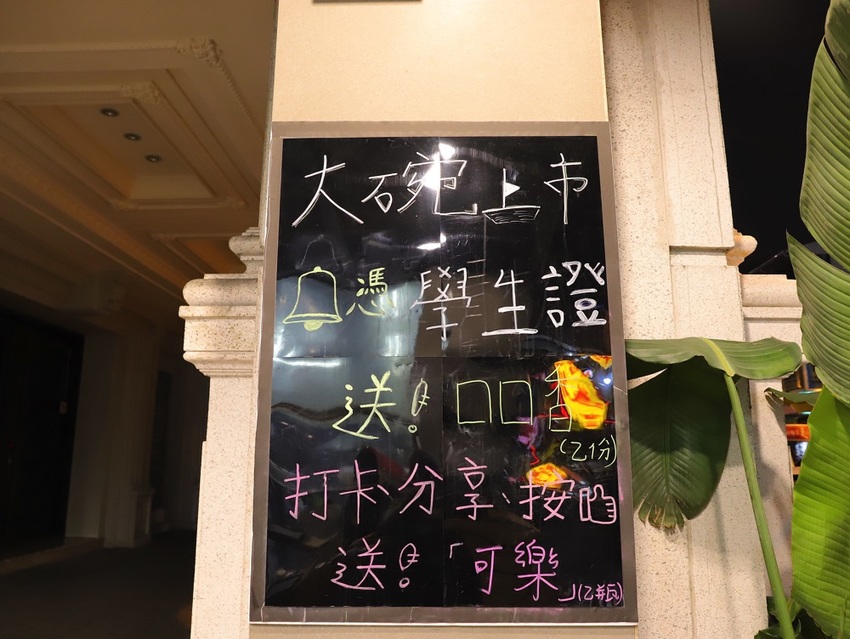 大碗上市
憑學生證
送! 口口香
(乙份)
打卡分享、按
送!「可樂」(乙瓶)